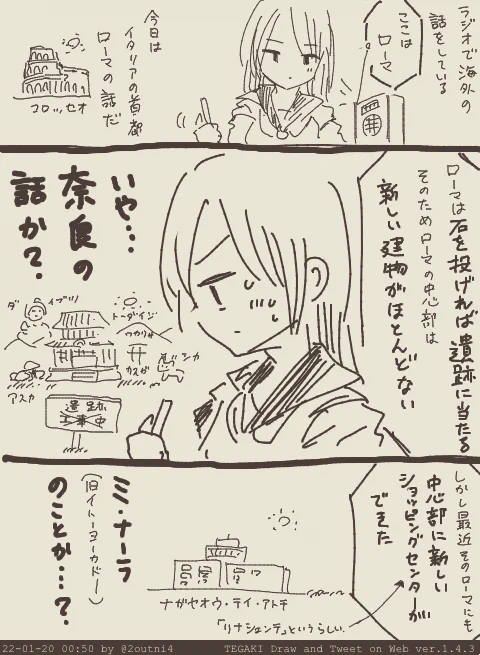 ラジオで海外の
話をしている
ここは
ローマ
今日は
イタリアの首都
ローマの話だ
コロッセオ
ローマは石を投げれば遺跡に当たる
そのためローマの中心部は
新しい建物がほとんどない
いや…
奈良の
話か?
ダイブツ
トーダイジ
ワカクサ
カスガ
シカ
アスカ
遺跡
工事中
しかし最近そのローマにも
中心部に新しい
ショッピングセンターが
できた
ミ・ナーラ
(旧イトーヨーカドー)
のことか…?
ナガヤオウ・テイ・アトチ
「リナシェンテ」というらしい
22-01-20 00:50 by @2outni4
TEGAKI Draw and Tweet on Web ver.1.4.3